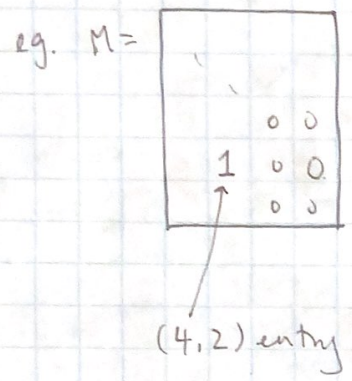 eg. M =
0 0
1 0 0
0 0
(4,2) entry